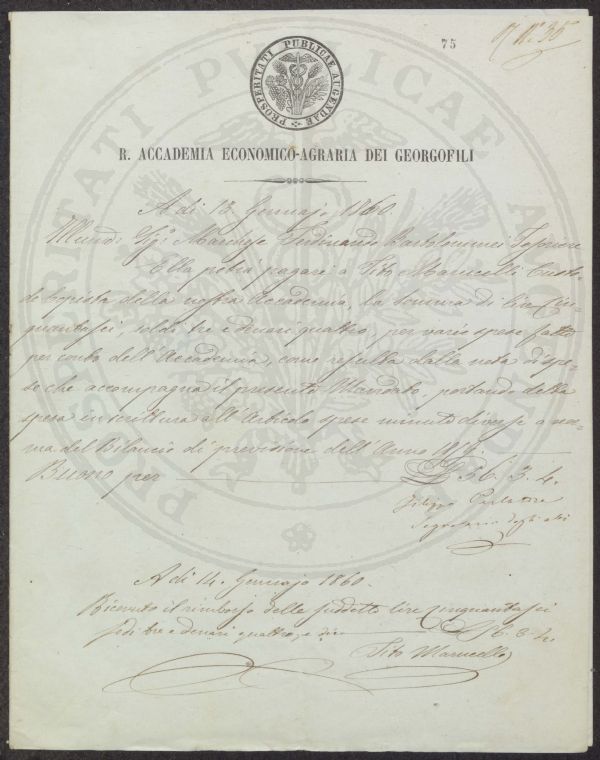 75
N° 36
PROSPERITATI PUBLICAE AUGENDAE
R. ACCADEMIA ECONOMICO-AGRARIA DEI GEORGOFILI
A dì 13. Gennajo 1860
Sig. Marchese Ferdinando Bartolommei Tesoriere
Ella potrà pagare a Tito Marucelli Custo-
de Copista della nostra Accademia, la somma di lire Cin-
quantasei, soldi tre e denari quattro, per varie spese fatte
per conto dell'Accademia, come resulta dalla nota di spe-
se che accompagna il presente Mandato, portando della
spesa in scrittura all'Articolo spese minute diverse a nor-
ma del Bilancio di previsione dell'Anno 1859.
Buono per £ 56. 3. 4.
Filippo Parlatore
Segretario degli atti
A dì 14. Gennajo 1860.
Ricevuto il rimborso delle suddette lire cinquantasei
soldi tre e denari quattro, e dico £ 56. 3. 4.
Tito Marucelli